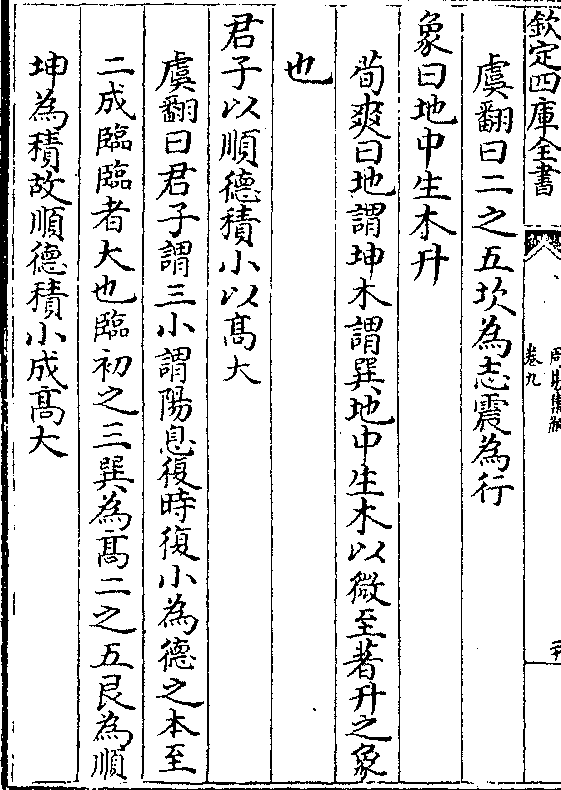 欽定四庫全書
周易集解
卷九
虞翻曰二之五坎為志震為行
象曰地中生木升
荀爽曰地謂坤木謂巽地中生木以微至著升之象
也
君子以順德積小以髙大
虞翻曰君子謂三小謂陽息復時復小為德之本至
二成臨臨者大也臨初之三巽為髙二之五艮為順
坤為積故順德積小成髙大